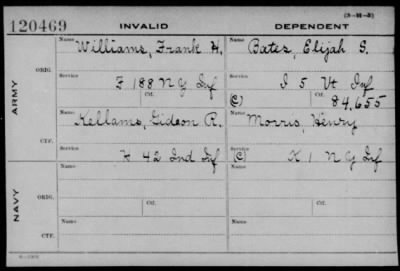 (3-H-3)
120469 INVALID DEPENDENT
ARMY
ORIG.
Name Williams, Frank H.
Name Bates, Elijah S.
Service F 188 N Y Inf
Service I 5 Vt Inf
(C) Ctf. 84,655
CTF.
Name Kellams, Gideon R.
Name Morris, Henry
Service H 42 Ind Inf
Service (C) K 1 N Y Inf
NAVY
ORIG.
Name
Name
Service
Ctf.
Service
Ctf.
CTF.
Name
Name